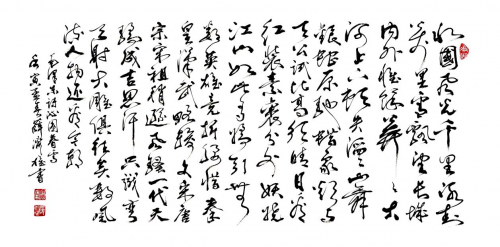 北國風光千里冰封
萬里雪飄望長城
内外惟餘莽莽大
河上下頓失滔滔山舞
銀蛇原馳蠟象欲與
天公試比高須晴日看
紅裝素裹分外妖嬈
江山如此多嬌引無
數英雄競折腰惜秦
皇漢武略輸文采唐
宗宋祖稍遜風騷一代天
驕成吉思汗只識彎
弓射大雕俱往矣數風
流人物還看今朝
毛澤東詩沁園春雪
壬寅 書